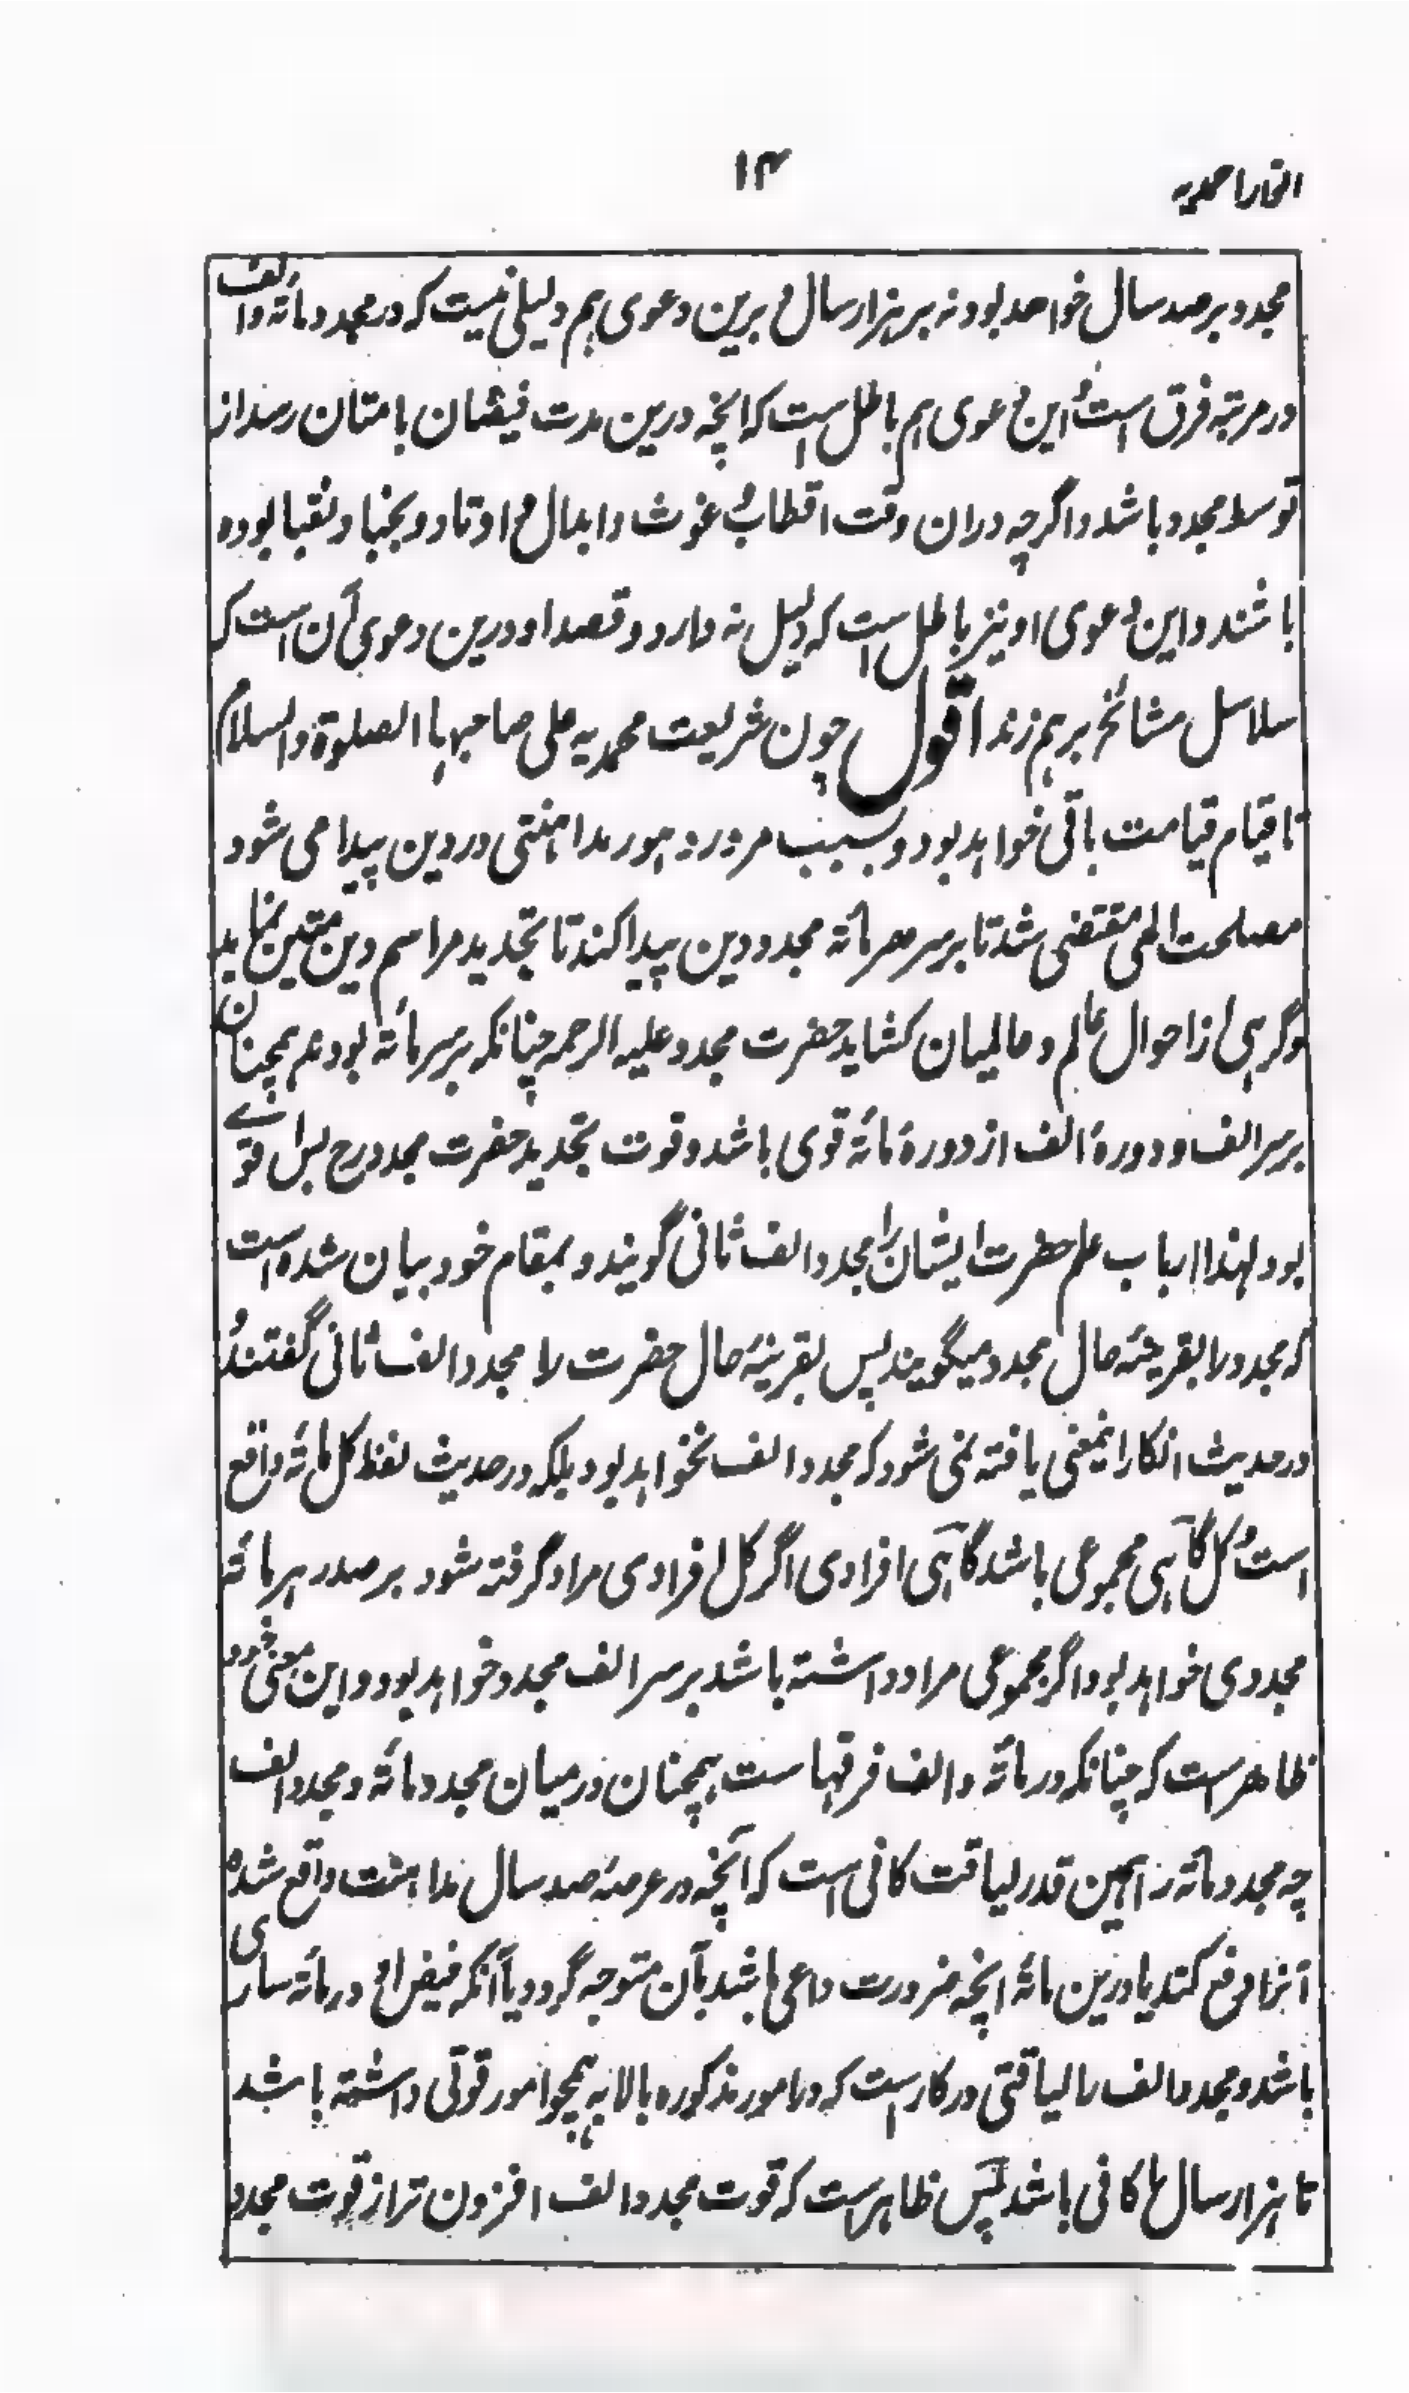 ۱۴
مجدد بر صد سال خواهد بود نه بر هزار سال و برین دعوی هم دلیلی نیست که در مجدد مائة و الف
در مرتبه فرق است و این دعوی هم باطل است که انچه درین مدت فیضان بامتان رسد از
توسط مجدد باشد و اگرچه دران وقت اقطاب و غوث و ابدال و اوتاد و نجبا و نقبا بوده
باشند و این دعوی او نیز باطل است که دلیل نه دارد و قصد او درین دعوی آن است که
سلاسل مشائخ بر هم زند اقول چون شریعت محمدیه علی صاحبها الصلوة والسلام
تا قیام قیامت باقی خواهد بود و بسبب مرور دهور مداهنتی در دین پیدا می شود
مصلحت الهی مقتضی شد تا بر سر هر مائة مجدد دین پیدا کند تا تجدید مراسم دین متین نماید
وگرهی از احوال عالم و عالمیان کشاید حضرت مجدد علیه الرحمه چنانکه بر سر مائة بود هم همچنان
بر سر الف و دورهٔ الف از دورهٔ مائة قوی باشد و قوت تجدید حضرت مجدد رح بس قوے
بود لهذا ارباب علم حضرت ایشان را مجدد الف ثانی گویند و بمقام خود بیان شده است
که مجدد را بقرینهٔ حال مجدد میگویند پس بقرینهٔ حال حضرت را مجدد الف ثانی گفتند و
در حدیث انکار اینمعنی یافته نمی شود که مجدد الف نخواهد بود بلکه در حدیث لفظ کل مائة واقع
است و کل گاهی مجموعی باشد گاهی افرادی اگر کل افرادی مراد گرفته شود بر صدر هر مائة
مجددی خواهد بود و اگر مجموعی مراد داشته باشد بر سر الف مجدد خواهد بود و این معنی خود
ظاهر ست که چنانکه در مائة و الف فرقهاست همچنان درمیان مجدد مائة و مجدد الف
چه مجدد مائة را همین قدر لیاقت کافی است که آنچه در عرصهٔ صد سال مداهنت واقع شده
آنرا رفع کند یا درین مائة انچه ضرورت داعی باشد بآن متوجه گردد یا آنکه فیض او در مائة ساری
باشد و مجدد الف را لیاقتی درکار است که در امور مذکوره بالا به همچو امور قوتی داشته باشد
تا هزار سال را کافی باشد پس ظاهر است که قوت مجدد الف افزون تر از قوت مجدد